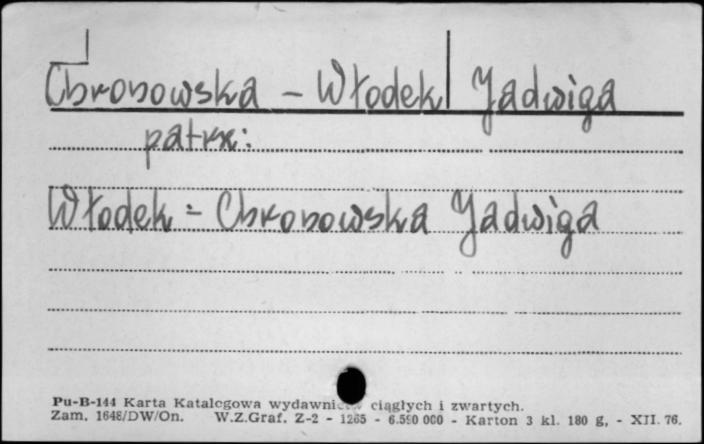 Chronowska - Włodek Jadwiga
patrz:
Włodek - Chronowska Jadwiga
Pu-B-144 Karta Katalogowa wydawnictw ciągłych i zwartych.
Zam. 1648/DW/On. W.Z.Graf. Z-2 - 1265 - 6.590 000 - Karton 3 kl. 180 g, - XII. 76.